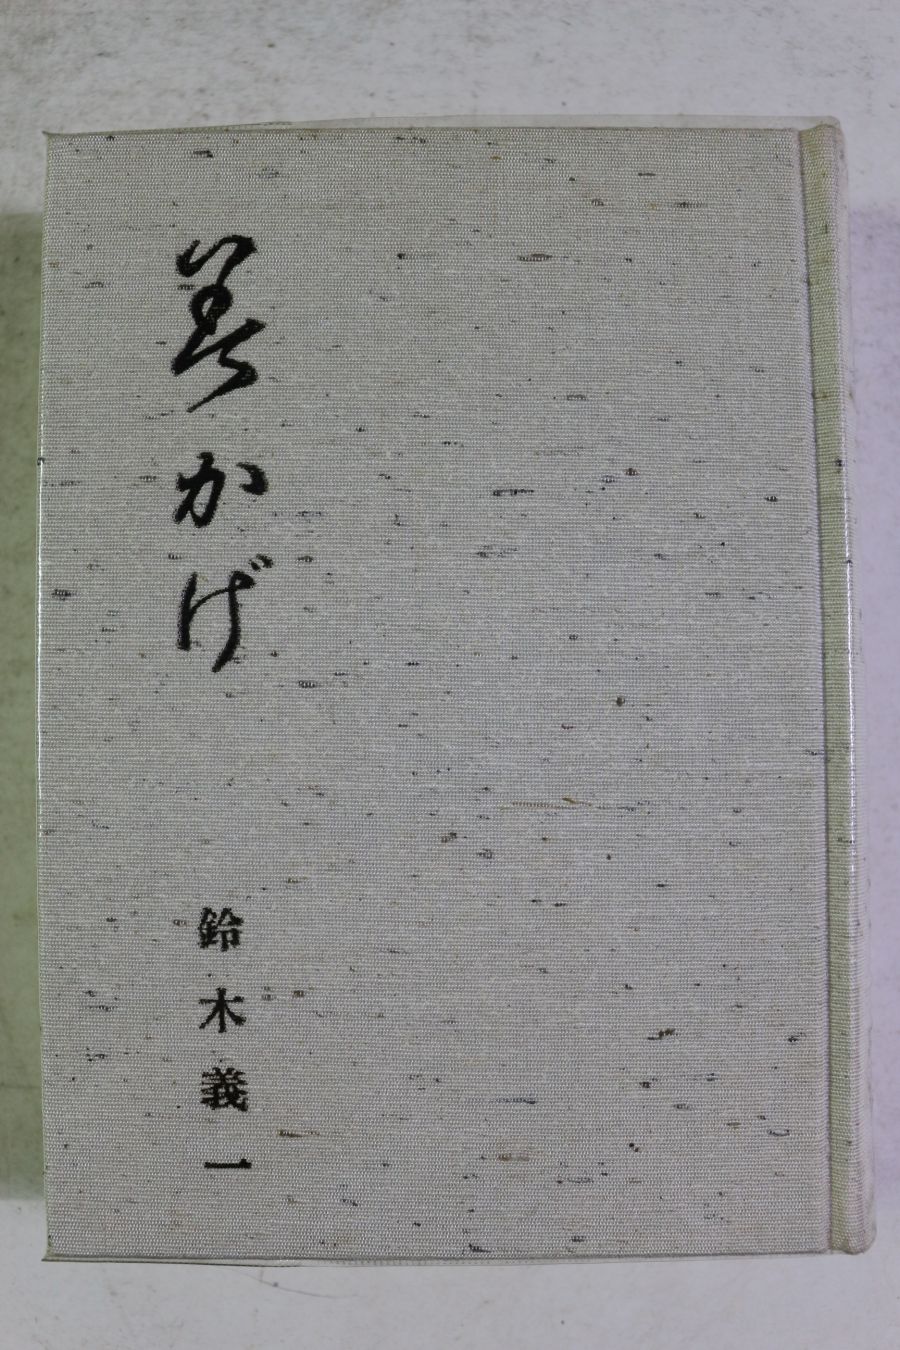 葉かげ
鈴木義一